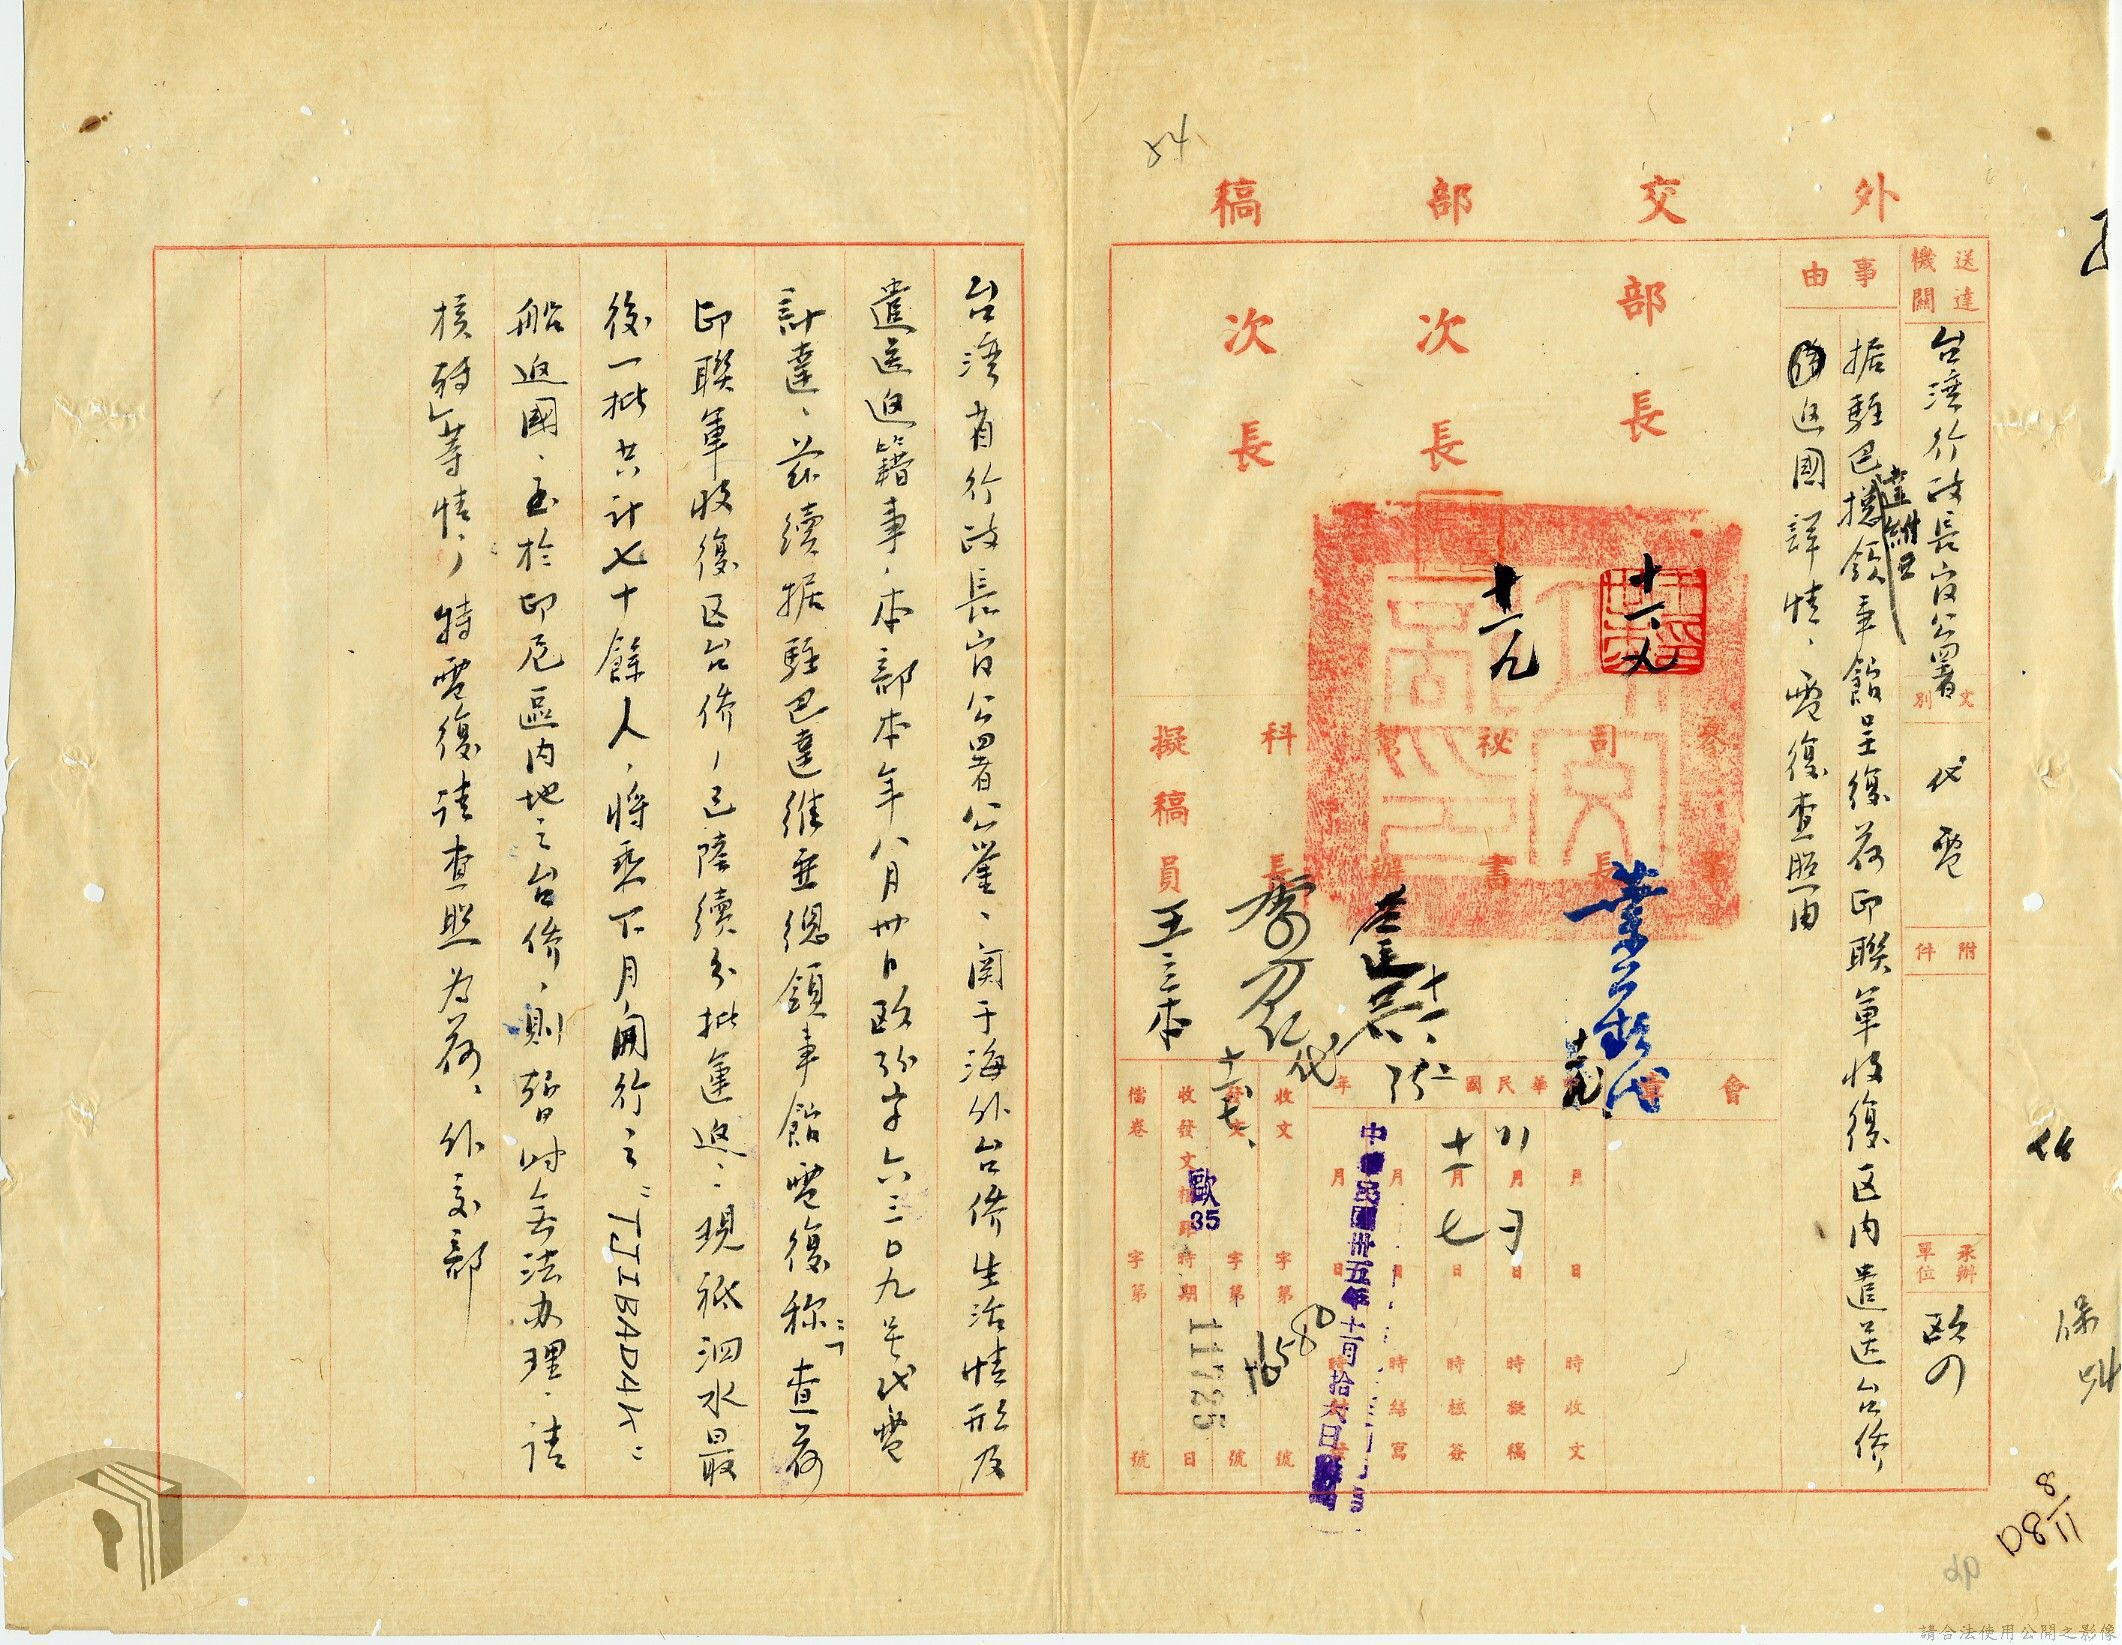 外交部稿
送達機關
台湾行政長官公署
文別
代電
附件
承辦單位
欧
事由
据駐巴達維亞總領事館呈復荷印聯軍收復区内遣送台侨
返國詳情、電復查照由
部長
次長
次長
十一、九
十一九
參事
司長
祕書
幫辦
科長
擬稿員
王三本
代
會章
中華民國 年
月 日 時收文
月 日 時擬稿
十一月七日 時核簽
月 日 時繕寫
中華民國卅五年十一月拾
收文 字第 號
發文 字第 號
收發文相距 時期 日
檔卷 字第 號
歐35
11725
54
台湾省行政長官公署公鑒、関于海外台侨生活情形及
遣送返籍事、本部本年八月卅日欧35字六三0九号代電
計達、茲續据駐巴達維亜總領事館電復称：「查荷
印聯軍收復区台侨、已陸續分批運返、現祗泗水最
後一批共计七十餘人、將乘下月開行之"TJIBADAK"
船返國、至於印尼區内地之台侨、則暫时無法办理、請
核轉」等情、特電復请查照為荷、外交部
請合法使用公開之影像